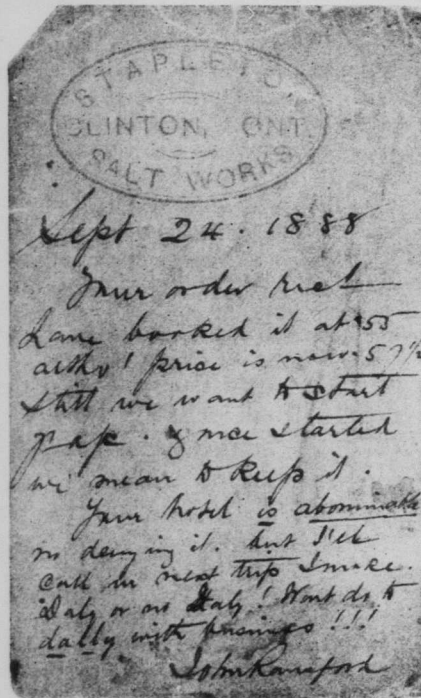 STAPLETON
CLINTON, ONT.
SALT WORKS
Sept 24. 1888
Your order recd
have booked it at 55
altho' price is now 57½
still we want to start
&nce started
we mean to keep it.
Your hotel is abominable
no denying it. but I'll
call in next trip I make.
Daly or no Daly! Wont do to
dally with business!!!
John Ransford